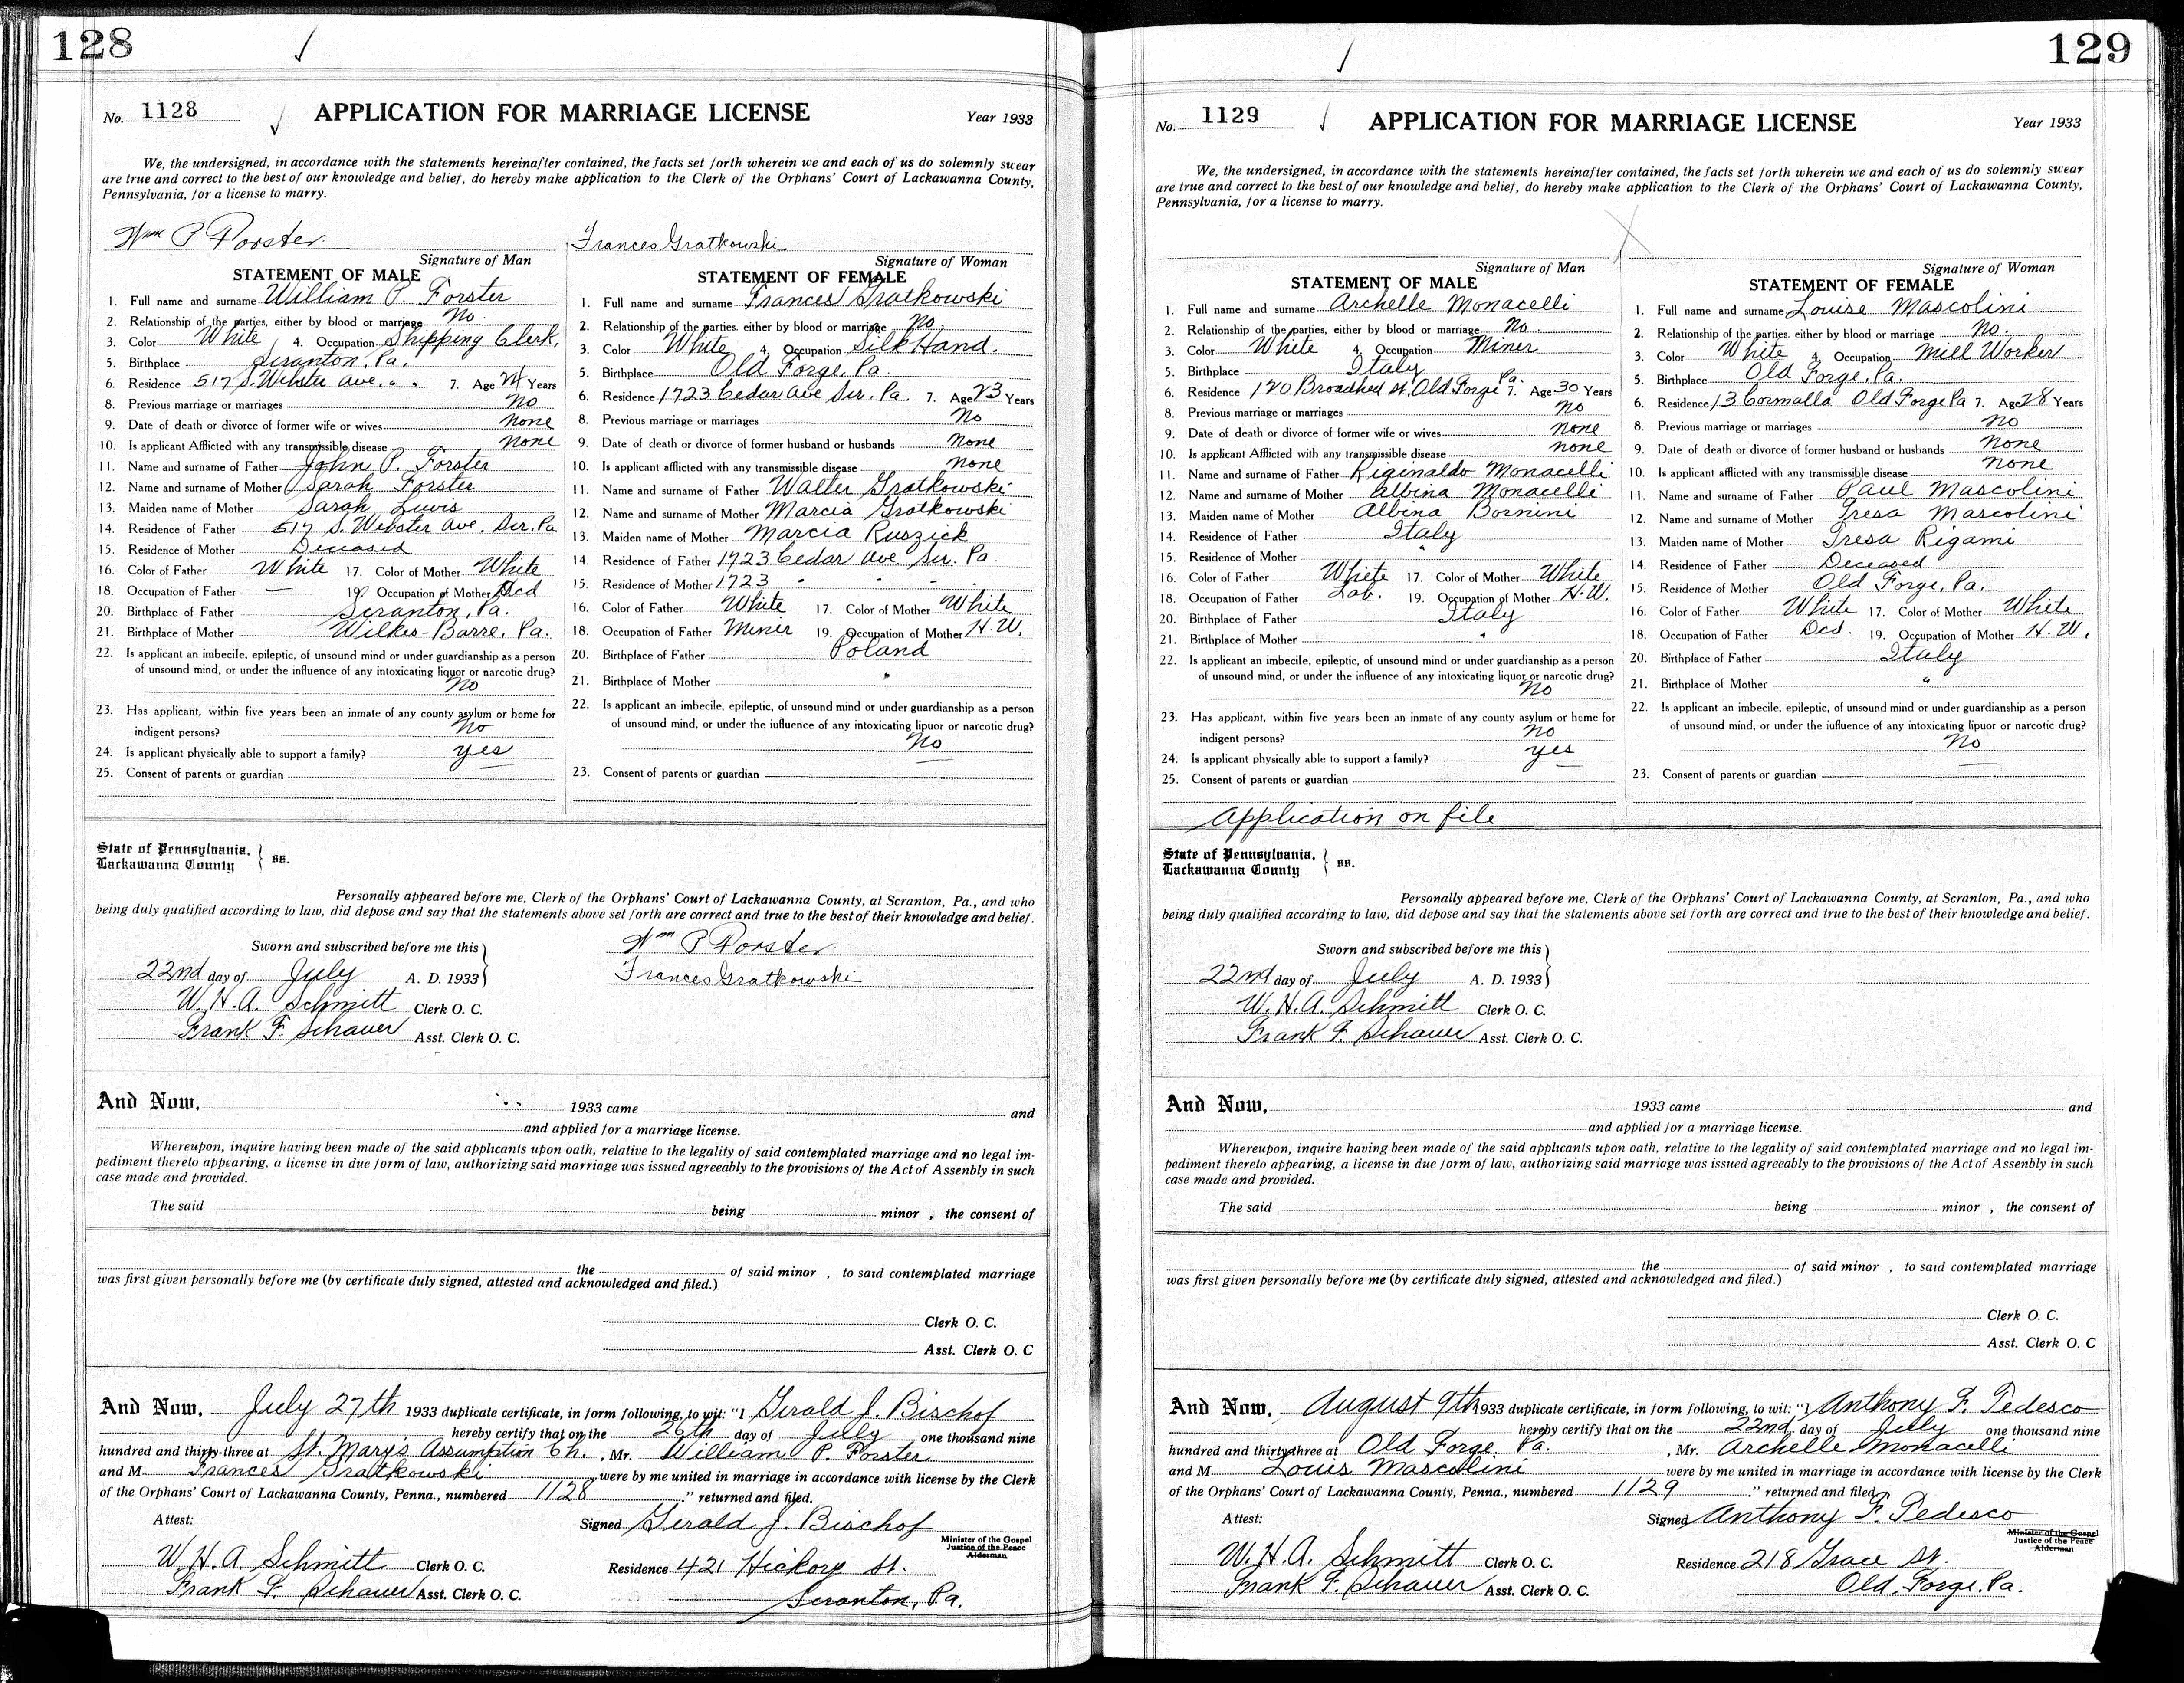 128
No. 1128 APPLICATION FOR MARRIAGE LICENSE Year 1933
We, the undersigned, in accordance with the statements hereinafter contained, the facts set forth wherein we and each of us do solemnly swear
are true and correct to the best of our knowledge and belief, do hereby make application to the Clerk of the Orphans' Court of Lackawanna County,
Pennsylvania, for a license to marry.
Wm P Forster
Signature of Man
STATEMENT OF MALE
1. Full name and surname William P. Forster
2. Relationship of the parties, either by blood or marriage No.
3. Color White 4. Occupation Shipping Clerk,
5. Birthplace Scranton, Pa.
6. Residence 517 S. Webster Ave. " " 7. Age 24 Years
8. Previous marriage or marriages No
9. Date of death or divorce of former wife or wives none
10. Is applicant Afflicted with any transmissible disease none
11. Name and surname of Father John P. Forster
12. Name and surname of Mother Sarah Forster
13. Maiden name of Mother Sarah Lewis
14. Residence of Father 517 S. Webster Ave. Scr. Pa
15. Residence of Mother Deceased
16. Color of Father White 17. Color of Mother White
18. Occupation of Father — 19. Occupation of Mother Dcd
20. Birthplace of Father Scranton, Pa.
21. Birthplace of Mother Wilkes-Barre, Pa.
22. Is applicant an imbecile, epileptic, of unsound mind or under guardianship as a person
of unsound mind, or under the influence of any intoxicating liquor or narcotic drug?
No
23. Has applicant, within five years been an inmate of any county asylum or home for
indigent persons? No
24. Is applicant physically able to support a family? yes
25. Consent of parents or guardian
Frances Gratkowski
Signature of Woman
STATEMENT OF FEMALE
1. Full name and surname Frances Gratkowski
2. Relationship of the parties. either by blood or marriage no
3. Color White 4. Occupation Silk Hand.
5. Birthplace Old Forge, Pa.
6. Residence 1723 Cedar Ave Scr. Pa. 7. Age 23 Years
8. Previous marriage or marriages No
9. Date of death or divorce of former husband or husbands none
10. Is applicant afflicted with any transmissible disease none
11. Name and surname of Father Walter Gratkowski
12. Name and surname of Mother Marcia Gratkowski
13. Maiden name of Mother Marcia Ruszick
14. Residence of Father 1723 Cedar Ave Scr. Pa.
15. Residence of Mother 1723 " " " "
16. Color of Father White 17. Color of Mother White
18. Occupation of Father Miner 19. Occupation of Mother H.W.
20. Birthplace of Father Poland
21. Birthplace of Mother "
22. Is applicant an imbecile, epileptic, of unsound mind or under guardianship as a person
of unsound mind, or under the iufluence of any intoxicating lipuor or narcotic drug?
No
23. Consent of parents or guardian
State of Pennsylvania,
Lackawanna County } ss.
Personally appeared before me, Clerk of the Orphans' Court of Lackawanna County, at Scranton, Pa., and who
being duly qualified according to law, did depose and say that the statements above set forth are correct and true to the best of their knowledge and belief.
Sworn and subscribed before me this Wm P Forster
22nd day of July A. D. 1933 Frances Gratkowski
W. H. A. Schmitt Clerk O. C.
Frank F. Schauer Asst. Clerk O. C.
And Now, 1933 came and
and applied for a marriage license.
Whereupon, inquire having been made of the said applicants upon oath, relative to the legality of said contemplated marriage and no legal im-
pediment thereto appearing, a license in due form of law, authorizing said marriage was issued agreeably to the provisions of the Act of Assembly in such
case made and provided.
The said being minor , the consent of
the of said minor , to said contemplated marriage
was first given personally before me (by certificate duly signed, attested and acknowledged and filed.)
Clerk O. C.
Asst. Clerk O. C
And Now, July 27th 1933 duplicate certificate, in form following, to wit: "I Gerald J. Bischof
hereby certify that on the 26th day of July one thousand nine
hundred and thirty-three at St. Mary's Assumption Ch. , Mr. William P. Forster
and M Frances Gratkowski were by me united in marriage in accordance with license by the Clerk
of the Orphans' Court of Lackawanna County, Penna., numbered 1128 " returned and filed.
Attest: Signed Gerald J. Bischof
Minister of the Gospel
Justice of the Peace
Alderman
W. H. A. Schmitt Clerk O. C. Residence 421 Hickory St.
Frank F. Schauer Asst. Clerk O. C. Scranton, Pa.
129
No. 1129 APPLICATION FOR MARRIAGE LICENSE Year 1933
We, the undersigned, in accordance with the statements hereinafter contained, the facts set forth wherein we and each of us do solemnly swear
are true and correct to the best of our knowledge and belief, do hereby make application to the Clerk of the Orphans' Court of Lackawanna County,
Pennsylvania, for a license to marry.
Signature of Man
STATEMENT OF MALE
1. Full name and surname Archelle Monacelli
2. Relationship of the parties, either by blood or marriage No
3. Color White 4. Occupation Miner
5. Birthplace Italy
6. Residence 120 Broadhed St. Old Forge Pa. 7. Age 30 Years
8. Previous marriage or marriages No
9. Date of death or divorce of former wife or wives none
10. Is applicant Afflicted with any transmissible disease none
11. Name and surname of Father Riginaldo Monacelli
12. Name and surname of Mother Albina Monacelli
13. Maiden name of Mother Albina Bornini
14. Residence of Father Italy
15. Residence of Mother "
16. Color of Father White 17. Color of Mother White
18. Occupation of Father Lab. 19. Occupation of Mother H.W.
20. Birthplace of Father Italy
21. Birthplace of Mother "
22. Is applicant an imbecile, epileptic, of unsound mind or under guardianship as a person
of unsound mind, or under the influence of any intoxicating liquor or narcotic drug?
No
23. Has applicant, within five years been an inmate of any county asylum or home for
indigent persons? no
24. Is applicant physically able to support a family? yes
25. Consent of parents or guardian
Application on file
Signature of Woman
STATEMENT OF FEMALE
1. Full name and surname Louise Mascolini
2. Relationship of the parties. either by blood or marriage No.
3. Color White 4. Occupation Mill Worker
5. Birthplace Old Forge, Pa.
6. Residence 13 Cormalla Old Forge Pa 7. Age 28 Years
8. Previous marriage or marriages no
9. Date of death or divorce of former husband or husbands none
10. Is applicant afflicted with any transmissible disease none
11. Name and surname of Father Paul Mascolini
12. Name and surname of Mother Tresa Mascolini
13. Maiden name of Mother Tresa Rigami
14. Residence of Father Deceased
15. Residence of Mother Old Forge, Pa.
16. Color of Father White 17. Color of Mother White
18. Occupation of Father Dcd. 19. Occupation of Mother H.W.
20. Birthplace of Father Italy
21. Birthplace of Mother "
22. Is applicant an imbecile, epileptic, of unsound mind or under guardianship as a person
of unsound mind, or under the iufluence of any intoxicating lipuor or narcotic drug?
No
23. Consent of parents or guardian
State of Pennsylvania,
Lackawanna County } ss.
Personally appeared before me, Clerk of the Orphans' Court of Lackawanna County, at Scranton, Pa., and who
being duly qualified according to law, did depose and say that the statements above set forth are correct and true to the best of their knowledge and belief.
Sworn and subscribed before me this
22nd day of July A. D. 1933
W. H. A. Schmitt Clerk O. C.
Frank F. Schauer Asst. Clerk O. C.
And Now, 1933 came and
and applied for a marriage license.
Whereupon, inquire having been made of the said applicants upon oath, relative to the legality of said contemplated marriage and no legal im-
pediment thereto appearing, a license in due form of law, authorizing said marriage was issued agreeably to the provisions of the Act of Assembly in such
case made and provided.
The said being minor , the consent of
the of said minor , to said contemplated marriage
was first given personally before me (by certificate duly signed, attested and acknowledged and filed.)
Clerk O. C.
Asst. Clerk O. C
And Now, August 9th 1933 duplicate certificate, in form following, to wit: "I Anthony F. Tedesco
hereby certify that on the 22nd day of July one thousand nine
hundred and thirty-three at Old Forge, Pa. , Mr. Archelle Monacelli
and M Louis Mascolini were by me united in marriage in accordance with license by the Clerk
of the Orphans' Court of Lackawanna County, Penna., numbered 1129 " returned and filed.
Attest: Signed Anthony F. Tedesco
Minister of the Gospel
Justice of the Peace
Alderman
W. H. A. Schmitt Clerk O. C. Residence 218 Grace St.
Frank F. Schauer Asst. Clerk O. C. Old Forge, Pa.